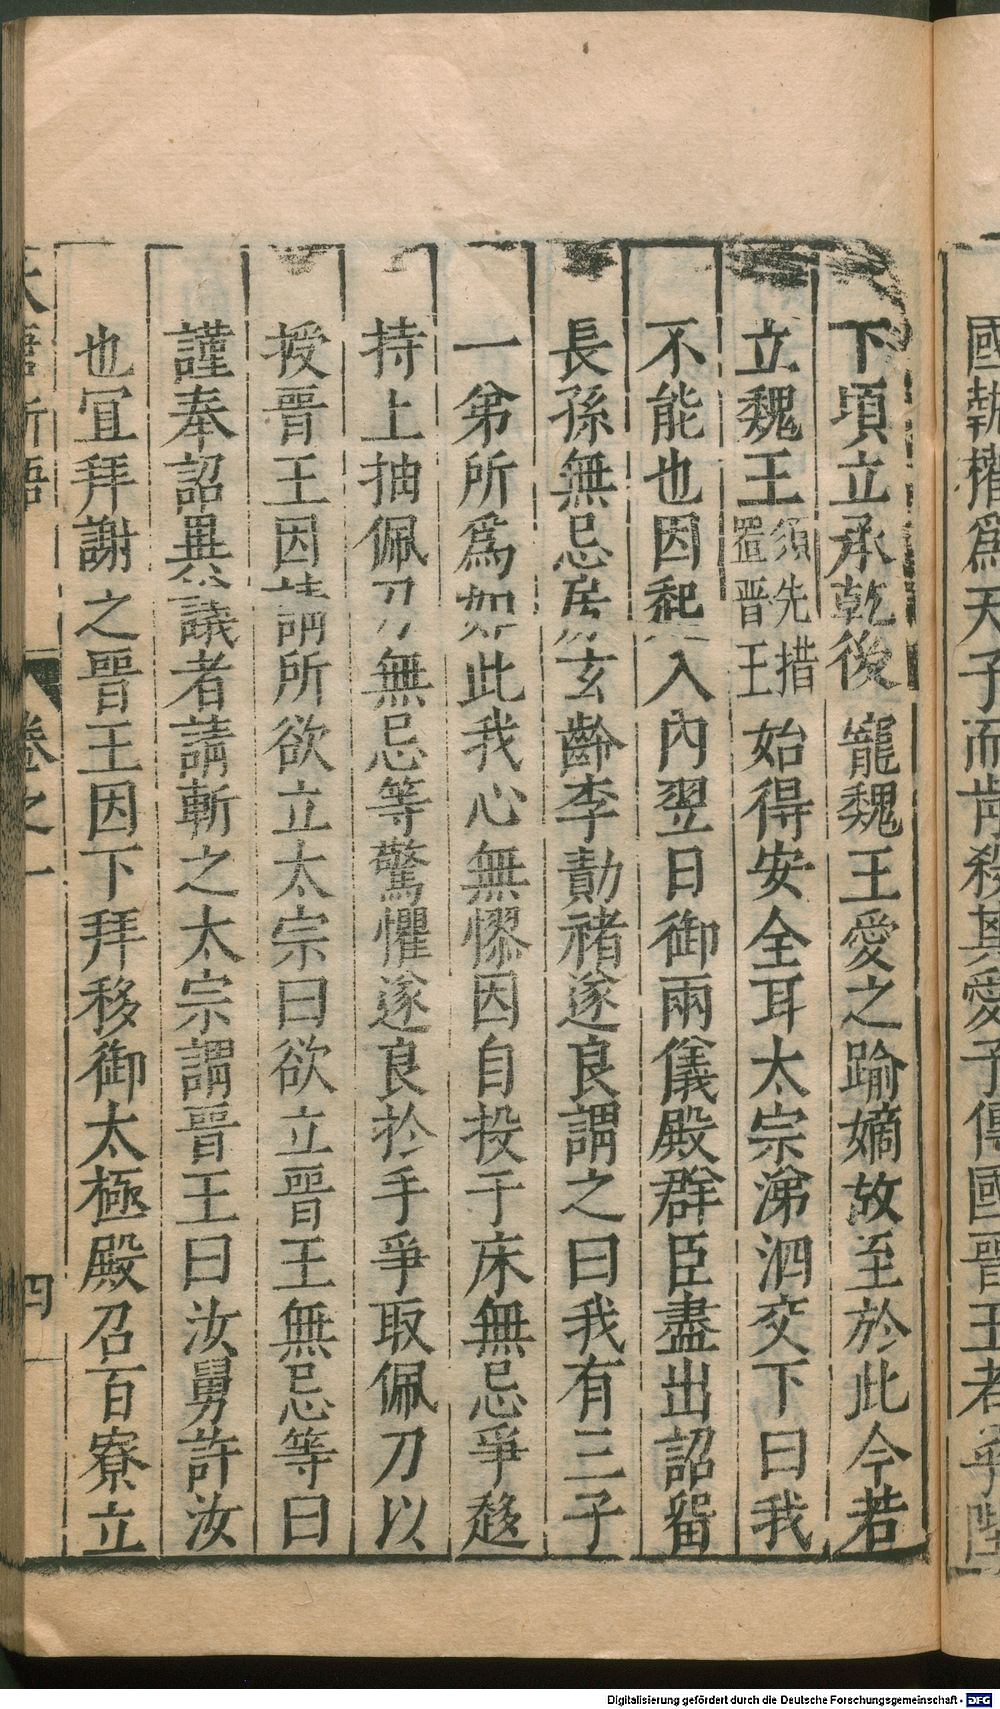 國執權爲天子而肯殺其愛子傳國晋王者乎陛
下頃立承乾後寵魏王愛之踰嫡故至於此今若
立魏王須先措置晋王始得安全耳太宗涕泗交下曰我
不能也因起入內翌日御兩儀殿群臣盡出詔畱
長孫無忌房玄齡李勣禇遂良謂之曰我有三子
一弟所爲如此我心無憀因自投于床無忌爭趍
持上抽佩刀無忌等驚懼遂良扵手爭取佩刀以
授晋王因請謂所欲立太宗曰欲立晋王無忌等曰
謹奉詔異議者請斬之太宗謂晋王曰汝舅許汝
也宜拜謝之晋王因下拜移御太極殿召百寮立
大唐新語 卷之一 四
Digitalisierung gefördert durch die Deutsche Forschungsgemeinschaft - DFG